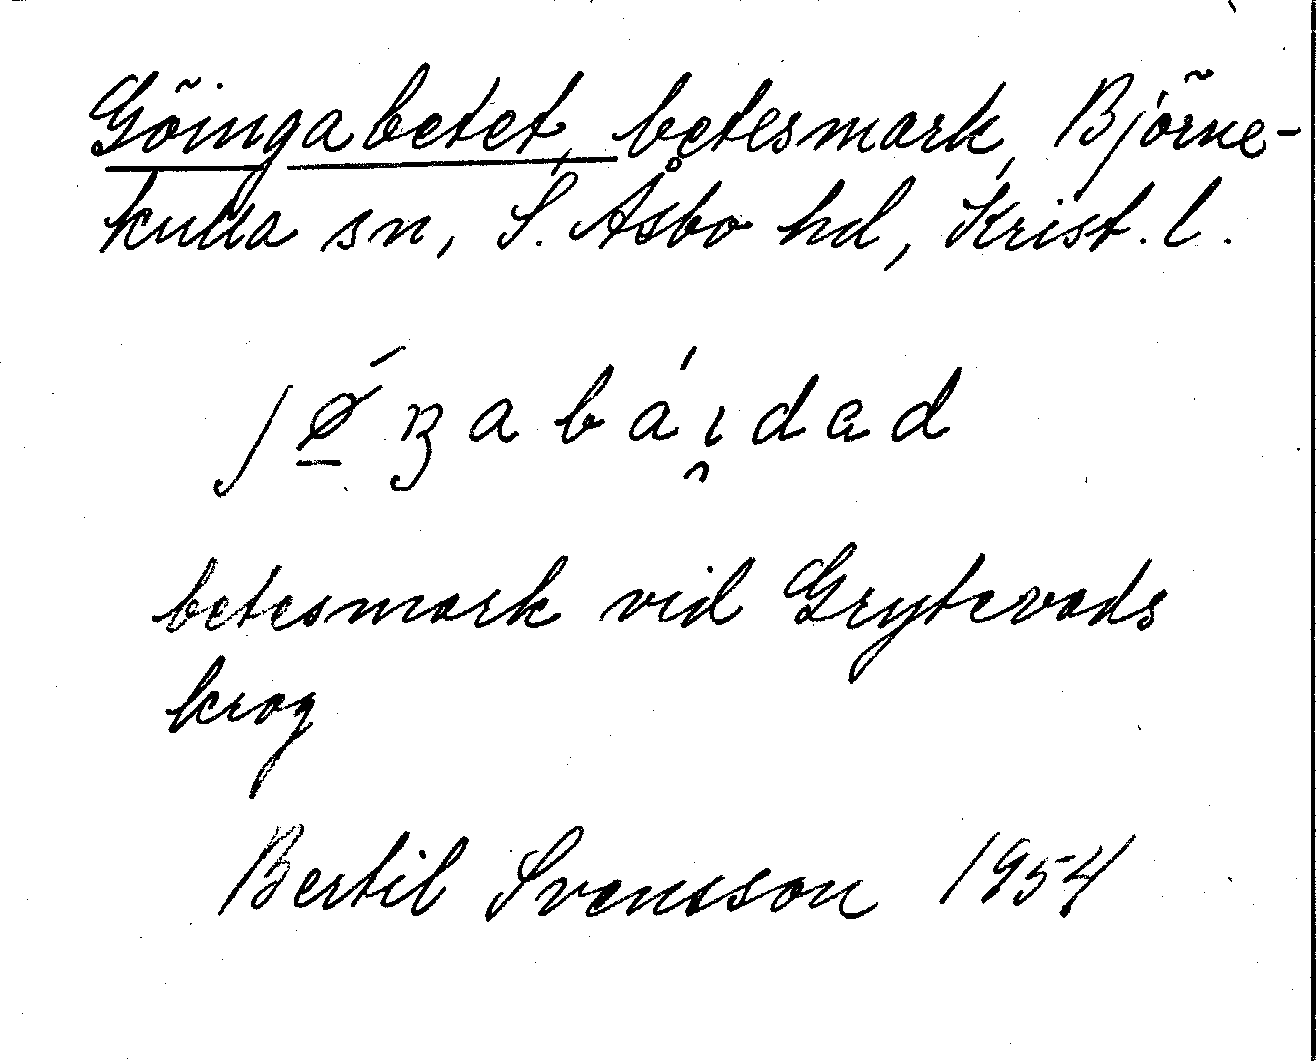 Göingabetet, betesmark, Björne-
kulla sn, S. Åsbo hd, Krist. l.
jǿ̱ŋabáı̯dad
betesmark vid Grytevads
krog
Bertil Svensson 1954